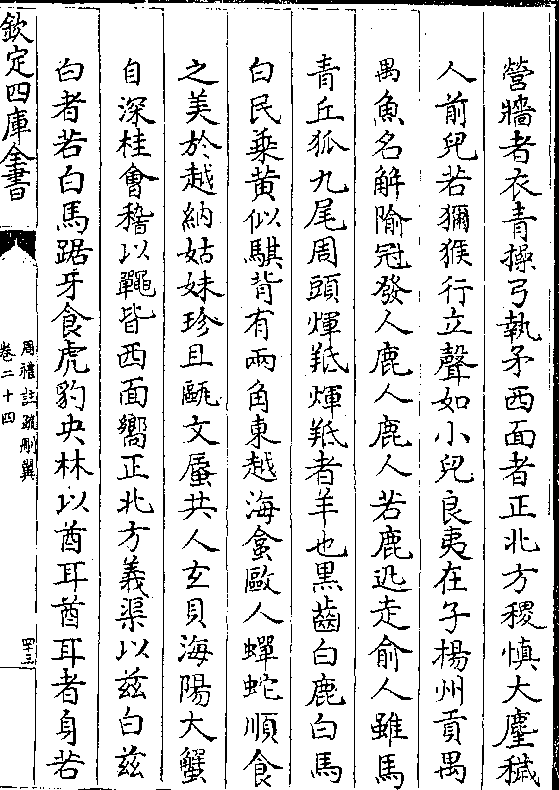 營牆者衣青操弓執矛西面者正北方稷慎大麈穢
人前兒若獼猴行立聲如小兒良夷在子揚州貢禺
禺魚名解隃冠發人鹿人鹿人若鹿迅走俞人雖馬
青丘狐九尾周頭煇羝煇羝者羊也黒齒白鹿白馬
白民乗黄似騏背有兩角東越海盦歐人蟬蛇順食
之美於越納姑妹珍且甌文蜃共人玄貝海陽大蟹
自深桂㑹稽以鼆皆西面嚮正北方義渠以兹白兹
白者若白馬踞牙食虎豹央林以酋耳酋耳者身若
欽定四庫全書
周禮註疏刪翼
卷二十四
四十三